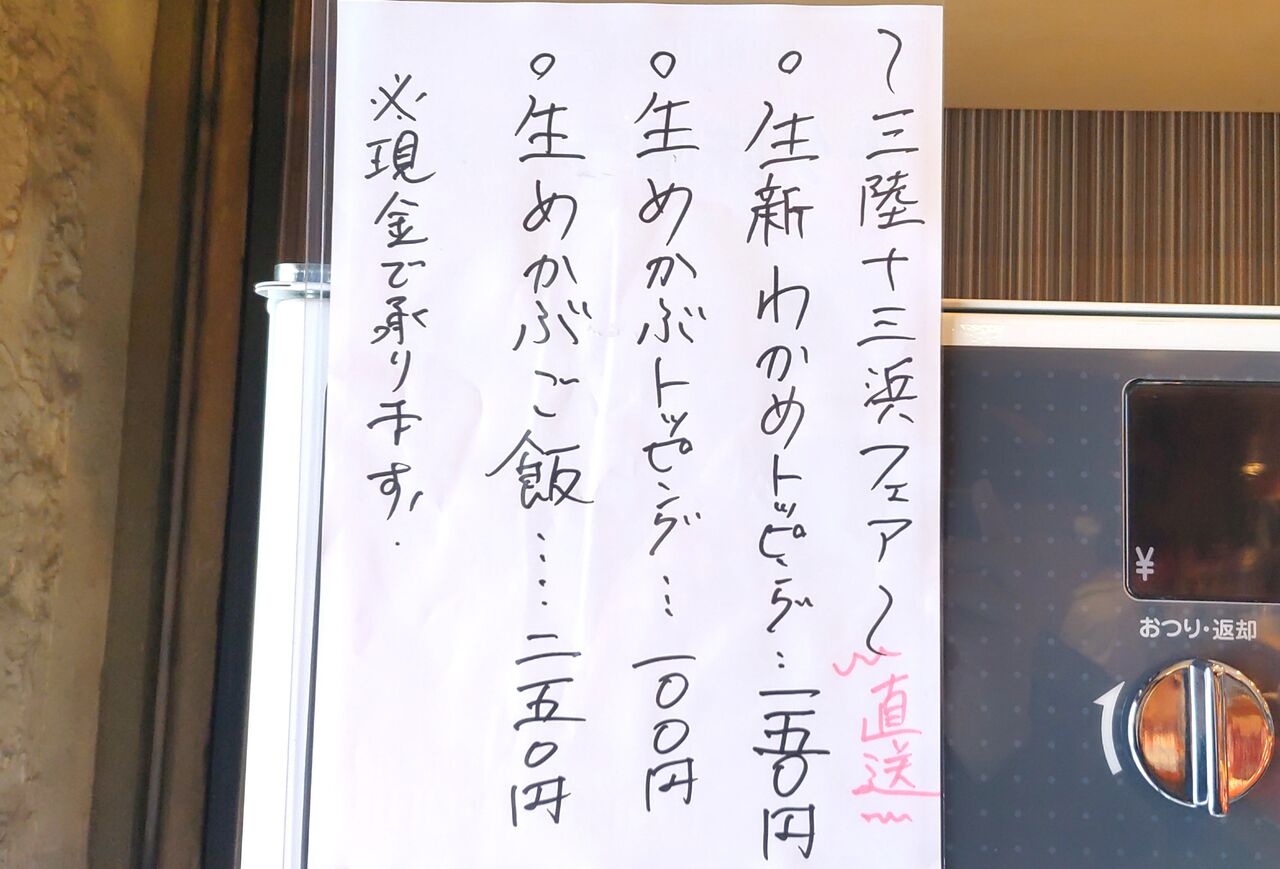 〜三陸十三浜フェア〜
〰直送〰
○生新わかめトッピング…一五〇円
○生めかぶトッピング…一〇〇円
○生めかぶご飯……二五〇円
※現金で承ります。
¥
おつり・返却